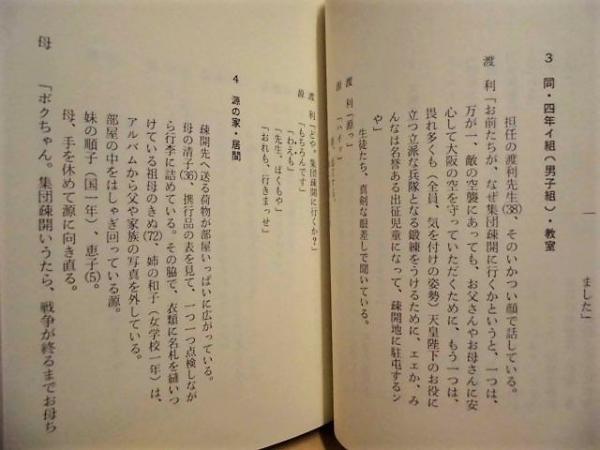 ました」
3 同・四年イ組(男子組)・教室
担任の渡利先生(38)、そのいかつい顔で話している。
渡 利「お前たちが、なぜ集団疎開に行くかというと、一つは、
万が一、敵の空襲にあっても、お父さんやお母さんに安
心して大阪の空を守っていただくために、もう一つは、
畏れ多くも(全員、気を付けの姿勢)天皇陛下のお役に
立つ立派な兵隊となる鍛練をうけるために、エエか、み
んなは名誉ある出征児童になって、疎開地に駐屯するン
や」
生徒たち、真剣な眼差しで聞いている。
渡 利「直っ
源 「ハイ
渡 利「どや、集団疎開に行くか?」
源 「もちろんです」
「わえも」
「先生、ぼくもや」
「おれも、行きまっせ」
4 源の家・居間
疎開先へ送る荷物が部屋いっぱいに広がっている。
母の清子(36)、携行品の表を見て、一つ一つ点検しなが
ら行李に詰めている。その脇で、衣類に名札を縫いつ
けている祖母のきぬ(72)、姉の和子(女学校一年)は、
アルバムから父や家族の写真を外している。
部屋の中をはしゃぎ回っている源。
妹の順子(国一年)、恵子(5)。
母、手を休めて源に向き直る。
母 「ボクちゃん。集団疎開いうたら、戦争が終るまでお母ち